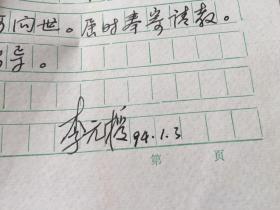 问世。届时奉寄请教。
导。
李元授 94.1.3
第 頁